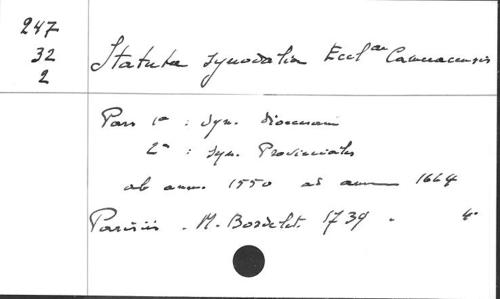 247
32
2
Statuta synodalia Eccl ae Cameracensis
Pars 1a : Syn. Dioecesani
2a : Syn. Provinciales
ab anno 1550 ad annum 1664
Parisiis . M. Bordelet. 1739 . 4°